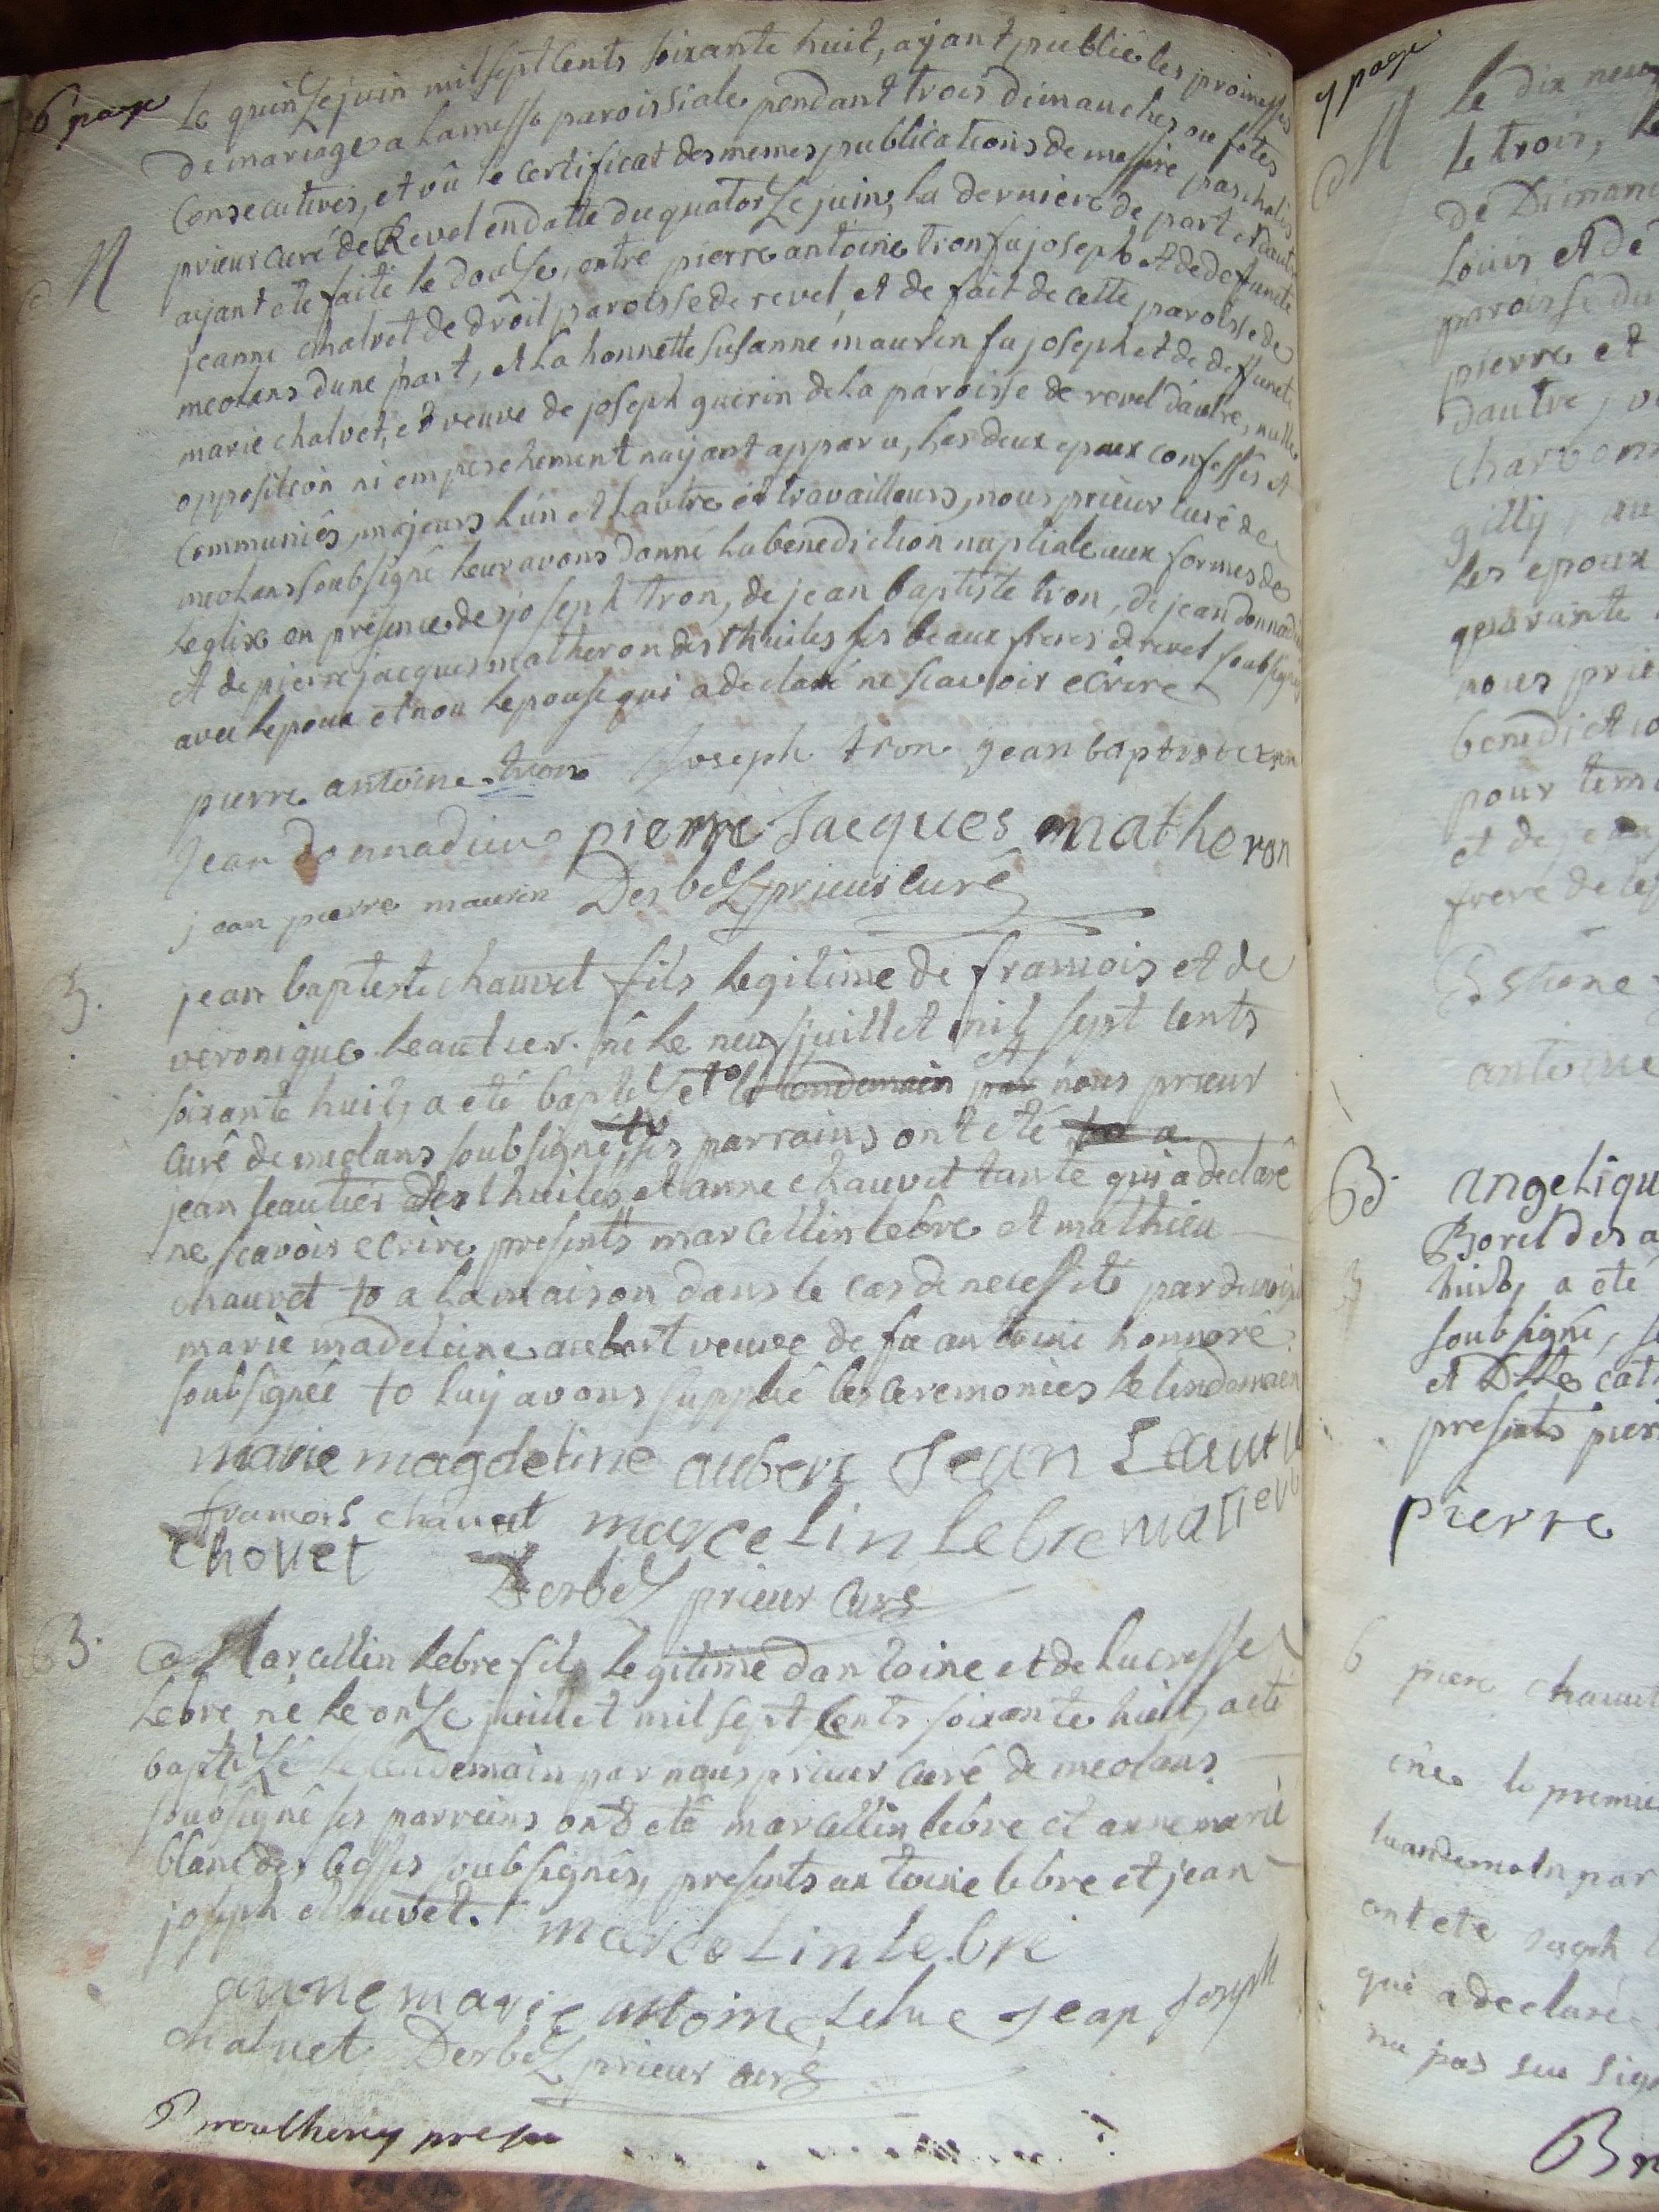 6 page
Le quinze juin mil sept cents soixante huit, ayant publié les promesses
de mariage a la messe paroissiale pendant trois dimanches ou fêtes
Consecutives, et vû le certificat des memes publications de messire paschalis
M prieur curé de Revel en datte du quatorze juin, la derniere de part et dautre
ayant ete faite le douze, entre pierre antoine tron fu joseph et de deffuncte
jeanne chalvet de droit paroisse de revel, et de fait de cette paroisse de
meolans dune part, et la honnette susanne maurin fu joseph et de deffuncte
marie chalvet, et veuve de joseph guerin de la paroisse de revel dautre, nulle
opposition ni empeschement nayant apparu, les deux epoux confessés et
Communiés, majeurs lun et lautre et travailleurs, nous prieur curé de
meolans soubsigné leur avons donné la benediction nuptiale aux formes de
leglise en presence de joseph tron, de jean baptiste tron, de jean donnadieu
et de pierre jacques matheron des thuiles ses beaux freres de revel soubsignés
avec lepoux et non lepouse qui a declaré ne scavoir ecrire
pierre antoine tron Joseph tron jean baptiste tron
Jean donnadieu pierre Jacques matheron
jean pierre maurin Derbez prieur curé
B. jean baptiste chauvet fils legitime de francois et de
veronique leautier né le neuf juillet mil sept cents
soixante huit, a eté baptizé to le lendemain par et nous prieur
curé de meolans soubsigné, ses parrains ont eté
jean leautier des thuiles, et anne chauvet tante qui a declaré
ne scavoir ecrire, presents marcellin lebre et mathieu
chauvet to a la maison dans le cas de necessité par
marie madeleine aubert veuve de fu antoine honnoré
soubsignée to luy avons supplié les ceremonies le lendemain
marie magdeline aubert Jean Leautier
francois chauvet marcelin lebre matieu
chovet Derbez prieur curé
B. Marcellin lebre fils legitime dantoine et de lucresse
Lebre né le onze juillet mil sept cents soixante huit, a eté
baptizé le lendemain par nous prieur curé de meolans
soubsigné ses parrains ont eté marcellin lebre et anne marie
blanc des soubsignés, presents antoine lebre et jean
joseph chauvet. marcelin lebre
anne marie antoine lebre jean joseph
chalvet Derbez prieur curé
7 page
M Le dix neuf
le trois, le
de Dimanc
Louis et de
paroisse du
pierre et
dautre, 
gilly, au
les epoux
quarante
nous prieu
benedictio
pour tem
et de jean
frere de lep
antoine
B. angeliqu
Borel des a
huit, a eté
soubsigné, s
et Dlle cath
presents pier
pierre
pierre chauvet
le premie
landemain par
ont ete
qui a declaré
na pas seu sign